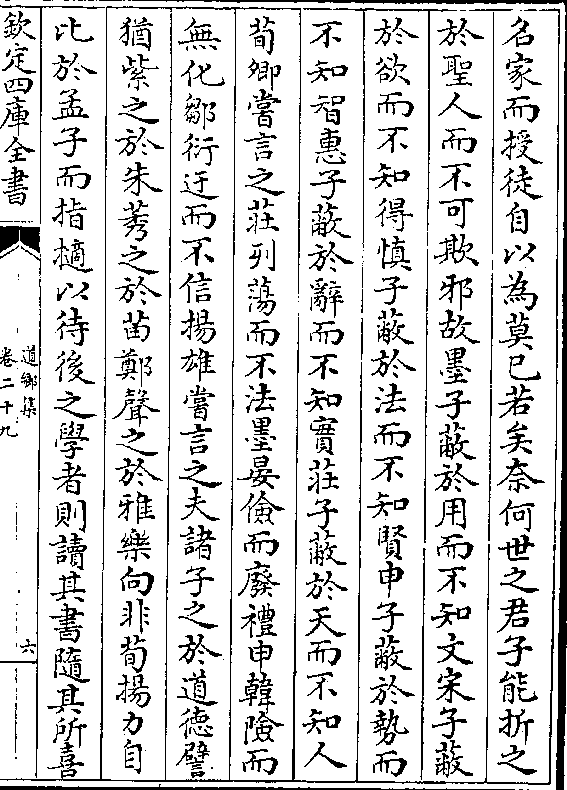 名家而授徒自以為莫已若矣奈何世之君子能折之
於聖人而不可欺邪故墨子蔽於用而不知文宋子蔽
於欲而不知得慎子蔽於法而不知賢申子蔽於勢而
不知智惠子蔽於辭而不知實莊子蔽於天而不知人
荀卿嘗言之莊列蕩而不法墨晏儉而廢禮申韓險而
無化鄒衍迂而不信揚雄嘗言之夫諸子之於道德譬
猶紫之於朱莠之於苗鄭聲之於雅樂向非荀揚力自
比於孟子而指擿以待後之學者則讀其書隨其所喜
欽定四庫全書
道鄉集
卷二十九
六